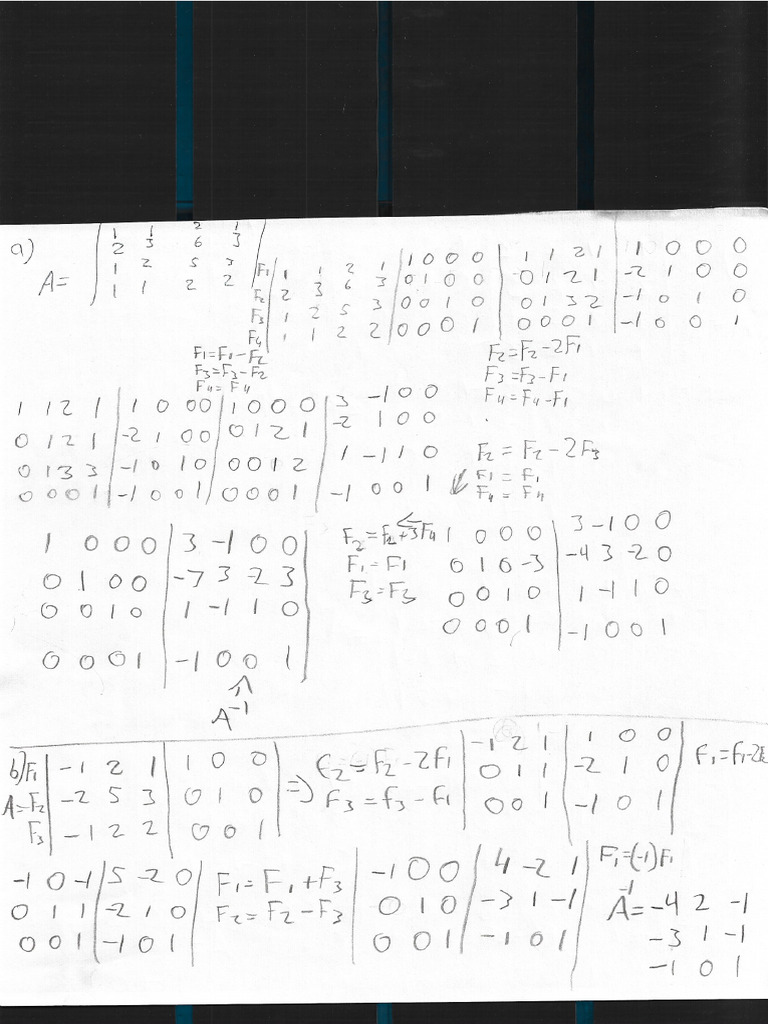 a)
A= | 1 1 2 1 |
2 3 6 3
1 2 5 3
1 1 2 2
F1 1 1 2 1 | 1 0 0 0 | 1 1 2 1 | 1 0 0 0
F2 2 3 6 3 | 0 1 0 0 | 0 1 2 1 | -2 1 0 0
F3 1 2 5 3 | 0 0 1 0 | 0 1 3 2 | -1 0 1 0
F4 1 1 2 2 | 0 0 0 1 | 0 0 0 1 | -1 0 0 1
F1=F1-F2
F3=F3-F2
F4=F4
F2=F2-2F1
F3=F3-F1
F4=F4-F1
1 1 2 1 | 1 0 0 0 | 1 0 0 0 | 3 -1 0 0
0 1 2 1 | -2 1 0 0 | 0 1 2 1 | -2 1 0 0
0 1 3 3 | -1 0 1 0 | 0 0 1 2 | 1 -1 1 0
0 0 0 1 | -1 0 0 1 | 0 0 0 1 | -1 0 0 1
F2 = F2-2F3
F1 = F1
F4 = F4
1 0 0 0 | 3 -1 0 0
0 1 0 0 | -7 3 -2 3
0 0 1 0 | 1 -1 1 0
0 0 0 1 | -1 0 0 1
A-1
F2=F2+3F4
F1=F1
F3=F3
1 0 0 0 | 3 -1 0 0
0 1 0 -3 | -4 3 -2 0
0 0 1 0 | 1 -1 1 0
0 0 0 1 | -1 0 0 1
b) F1 | -1 2 1 | 1 0 0
A= F2 | -2 5 3 | 0 1 0
F3 | -1 2 2 | 0 0 1
=> F2=F2-2F1
F3=F3-F1
-1 2 1 | 1 0 0
0 1 1 | -2 1 0
0 0 1 | -1 0 1
-1 0 -1 | 5 -2 0
0 1 1 | -2 1 0
0 0 1 | -1 0 1
F1=F1+F3
F2=F2-F3
-1 0 0 | 4 -2 1
0 1 0 | -3 1 -1
0 0 1 | -1 0 1
F1=(-1)F1
A-1= -4 2 -1
-3 1 -1
-1 0 1